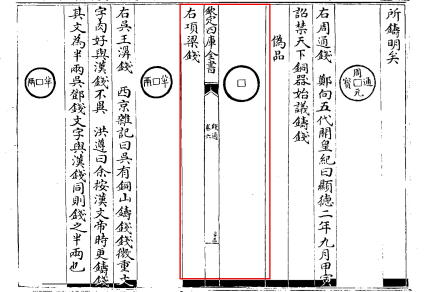 所鑄明矣
周通元寳
右周通錢 鄭向五代開皇紀曰顯德二年九月甲寅
詔禁天下銅器始議鑄錢
偽品
欽定四庫全書
錢通
卷六
右項梁錢
半兩
右吳王濞錢 西京雜記曰吳有銅山鑄錢錢微重文
字肉好與漢錢不異 洪遵曰余按漢文帝時更鑄錢
其文為半兩吳鄧錢文字與漢錢同則錢之半兩也
半兩